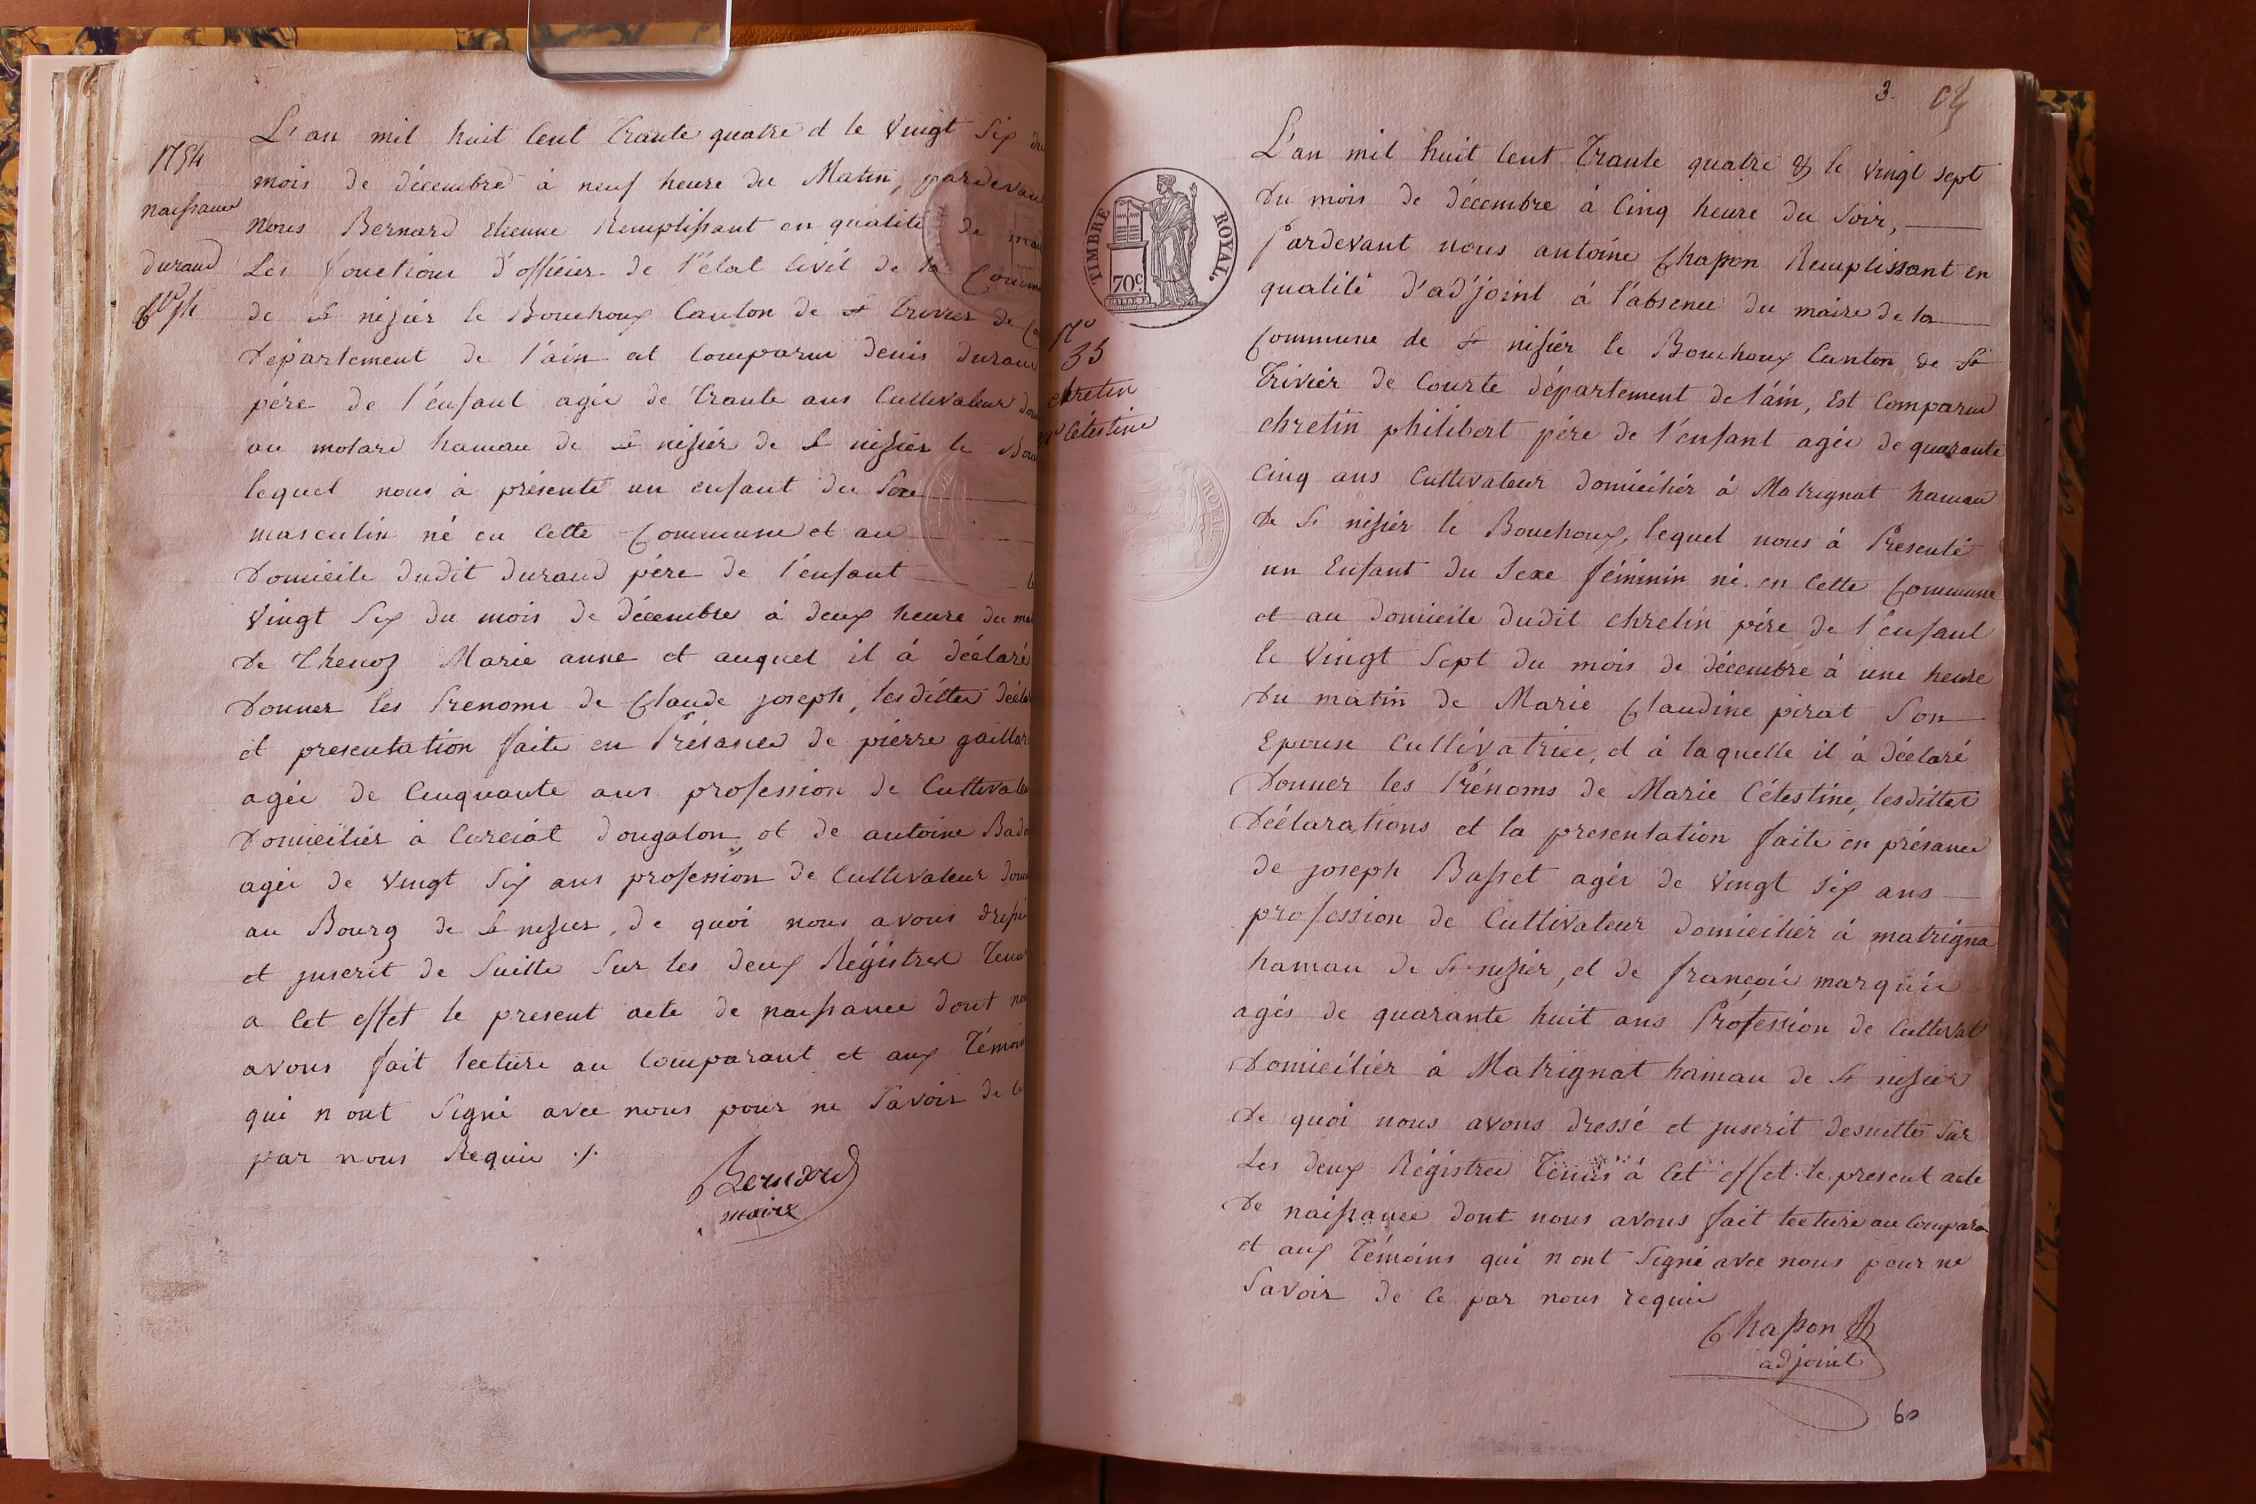 L'an mil huit Cent Trante quatre et le Vingt Six du
mois de décembre à neuf heure du Matin, pardevant
Nous Bernard Etienne Remplissant en qualité de
Les fonctions d'officier de l'état Civil de la
de St nisier le Bouchoux Canton de St Trivier de
Département de l'ain est Comparu denis durand
père de l'enfant agée de Trante ans Cultivateur
au molard hamau de St nisier de St nisier le
lequel nous à présenté un enfant du Sexe
masculin né en Cette Commune et au
Domicile dudit durand père de l'enfant
Vingt Six du mois de décembre à deux heure du
de Thenoz Marie anne et auquel il à déclaré
Donner les Prenoms de Claude joseph, lesdittes
et presentation faite en Présance de pièrre
agée de Cinquante ans profession de
Domicilier à Curciat dongalon et de antoine
agée de Vingt Six ans profession de Cultivateur
au Bourg de St nisier, de quoi nous avons
et juscrit de Suitte Sur les deux Régistres
a Cet effet le present acte de naissance dont
avons fait lecture au Comparant et aux
qui n ont Signé avec nous pour ne Savoir de
par nous Requis ./.
Bernard
maire
naissance
durand
3.
TIMBRE ROYAL
70c.
L'an mil huit Cent Trante quatre & le vingt sept
Du mois de décembre à Cinq heure du Soir,
Pardevant nous antoine Chapon Remplissant en
qualité d'ad'joint à l'absence du maire de la
Commune de St nisier le Bouchoux Canton de St
Trivier de Courte département de l'ain, Est Comparu
chretin philibert père de l'enfant agée de quarante
Cinq ans Cultivateur domicilier à Matrignat hamau
de St nisier le Bouchoux, lequel nous à Présenté
un Enfant du Sexe féminin né en Cette Commune
et au domicile dudit chretin père de l'enfant
le Vingt Sept du mois de décembre à une heure
Du matin de Marie Claudine pirat Son
Epouse Cultivatrice, et à laquelle il à déclaré
Donner les Prénoms de Marie Célestine, lesdittes
Déclarations et la presentation faite en présance
de joseph Basset agée de Vingt Six ans
profession de Cultivateur domicilier à matrigna
hamau de St nisier, et de françois marquis
agés de quarante huit ans Profession de
Domicilier à Matrignat hamau de St nisier
De quoi nous avons dressé et juscrit desuitte Sur
Les deux Régistres Tenus à Cet effet le present acte
De naissance dont nous avons fait lecture au
et aux Témoins qui n ont Signé avec nous pour ne
Savoir de Ce par nous requis
Chapon
adjoint
No
35
chretin
Célestine
60